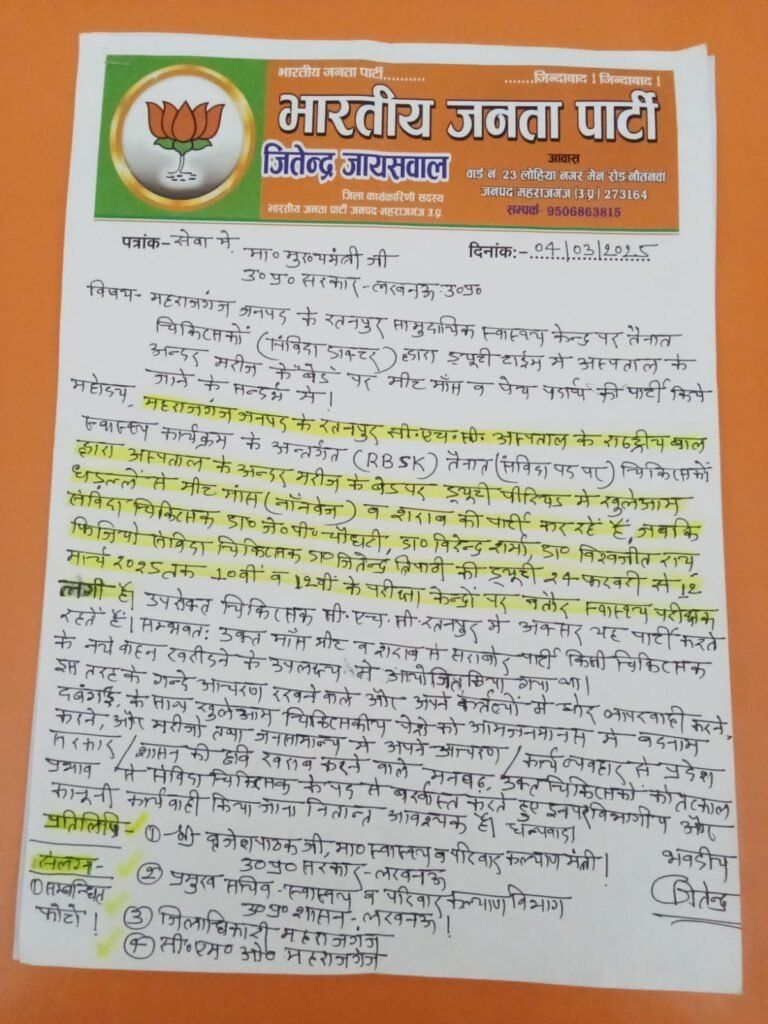 भारतीय जनता पार्टी.......... .......जिन्दाबाद ! जिन्दाबाद !
भारतीय जनता पार्टी
जितेन्द्र जायसवाल
जिला कार्यकारिणी सदस्य
भारतीय जनता पार्टी जनपद-महराजगंज उ.प्र.
आवास
वार्ड नं. 23 लोहिया नगर मेन रोड-नौतनवा
जनपद-महराजगंज (उ.प्र.) 273164
सम्पर्क- 9506863815
पत्रांक- सेवा में, दिनांक:- 04/03/2025
मा० मुख्यमंत्री जी
उ०प्र० सरकार - लखनऊ उ०प्र०
विषय- महराजगंज जनपद के रतनपुर सामुदायिक स्वास्थ्य केन्द्र पर तैनात
चिकित्सकों (संविदा डाक्टर) द्वारा ड्यूटी टाईम में अस्पताल के
अन्दर मरीज के "बेड" पर मीट माँस व पेय पदार्थ की पार्टी किये
जाने के सन्दर्भ में !
महोदय, महराजगंज जनपद के रतनपुर सी०एच०सी० अस्पताल के राष्ट्रीय बाल
स्वास्थ्य कार्यक्रम के अन्तर्गत (RBSK) तैनात (संविदा पद पर) चिकित्सकों
द्वारा अस्पताल के अन्दर मरीज के बेड पर ड्यूटी पीरियड में खुलेआम
धड़ल्ले से मीट मांस (नॉनवेज) व शराब की पार्टी कर रहें हैं, जबकि
संविदा चिकित्सक डा० जे०पी० चौधरी, डा० विरेन्द्र शर्मा, डा० विश्वजीत राय,
फिजियो संविदा चिकित्सक डा० जितेन्द्र त्रिपाठी की ड्यूटी 24 फरवरी से 12
मार्च 2025 तक 10वीं व 12वीं के परीक्षा केन्द्रों पर बतौर स्वास्थ्य परीक्षक
लगी है। उपरोक्त चिकित्सक सी०एच०सी० रतनपुर में अक्सर यह पार्टी करते
रहतें हैं। सम्भवतः उक्त माँस मीट व शराब से सराबोर पार्टी किसी चिकित्सक
के नये वाहन खरीदने के उपलक्ष्य में आयोजित किया गया था।
इस तरह के गन्दे आचरण रखने वाले और अपने कर्तव्यों में घोर लापरवाही करने,
दबंगई के साथ खुलेआम चिकित्सकीय पेशे को आमजनमानस में बदनाम
करने, और मरीजों तथा जनसामान्य में अपने आचरण / कार्य व्यवहार से प्रदेश
सरकार / शासन की छवि खराब करने वाले मनबढ़, उक्त चिकित्सकों को तत्काल
प्रभाव से संविदा चिकित्सक के पद से बर्खास्त करते हुए इनपर विभागीय और
कानूनी कार्यवाही किया जाना नितान्त आवश्यक है। धन्यवाद।
प्रतिलिपि- ① श्री बृजेश पाठक जी, मा० स्वास्थ्य व परिवार कल्याण मंत्री ! भवदीय
उ०प्र० सरकार - लखनऊ
संलग्न- ② प्रमुख सचिव - स्वास्थ्य व परिवार कल्याण विभाग जितेन्द्र
① सम्बन्धित उ०प्र० शासन - लखनऊ !
फोटो ! ③ जिलाधिकारी महराजगंज
④ सी०एम०ओ० महराजगंज